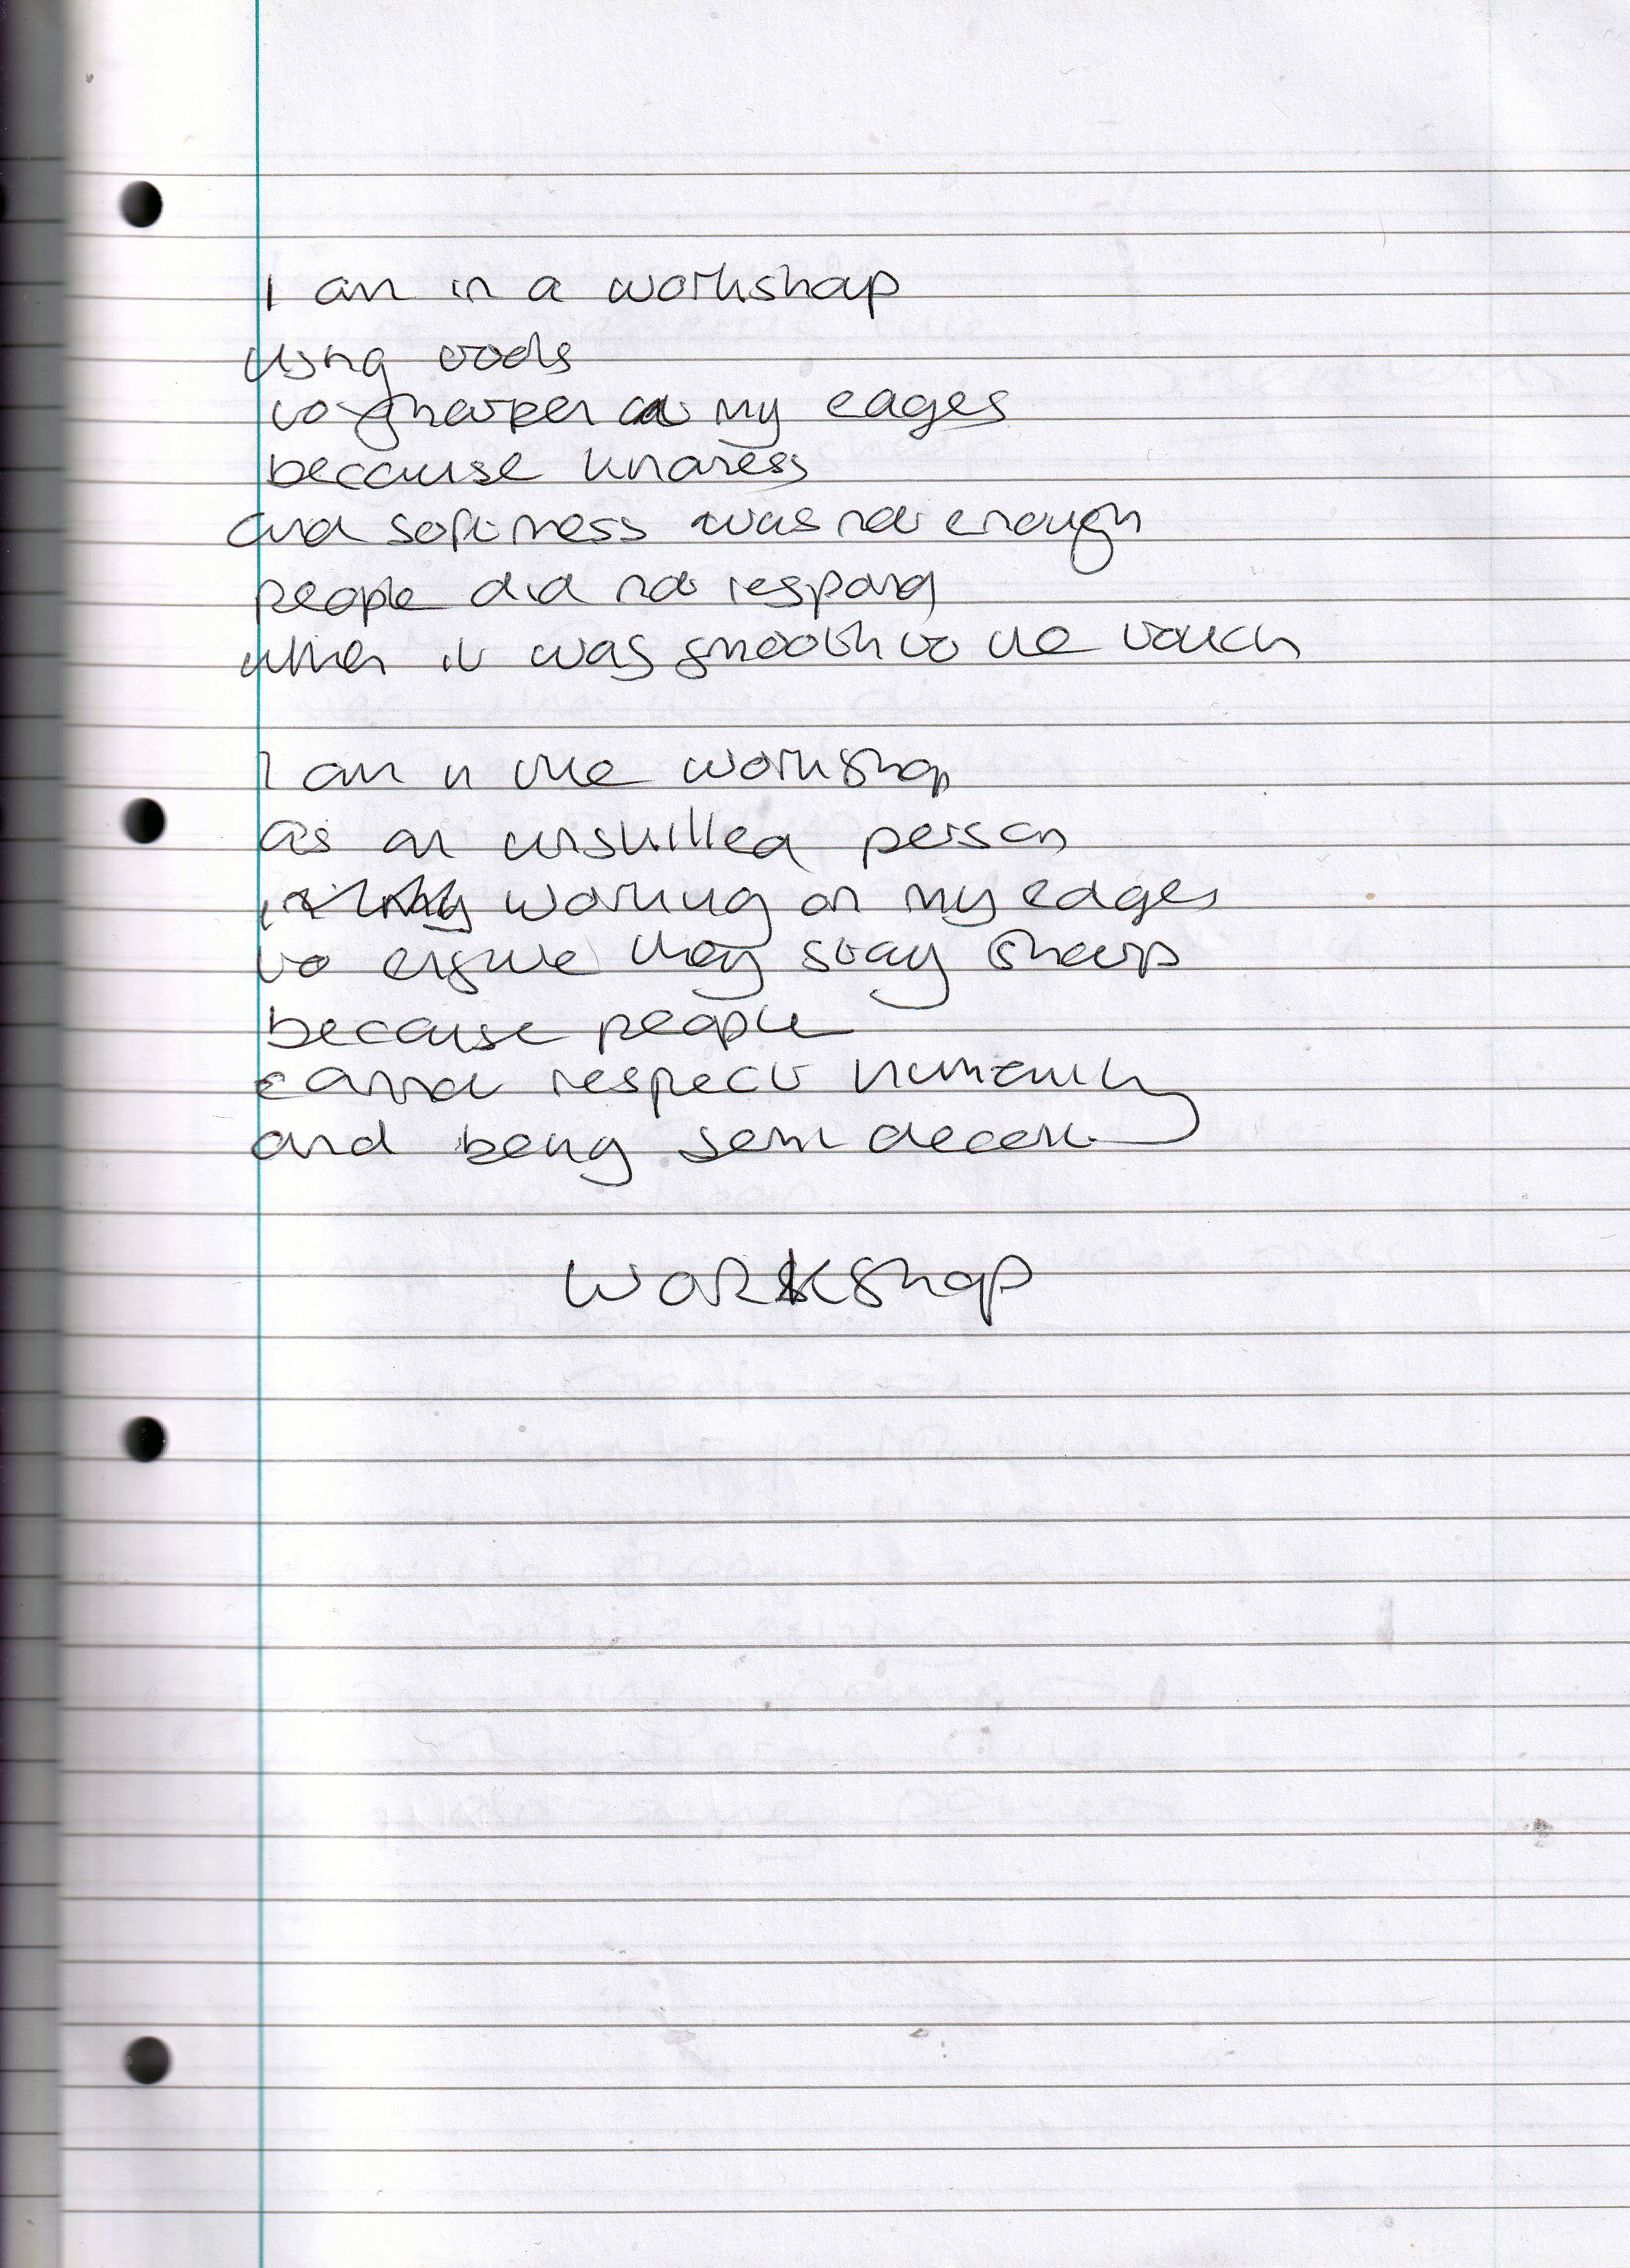 I am in a workshop
using tools
to sharpen my edges
because kindness
and softness was not enough
people did not respond
when it was smooth to the touch
I am in the workshop
as an unskilled person
working on my edges
to ensure they stay sharp
because people
cannot respect humanity
and being semi decent
WORKShop